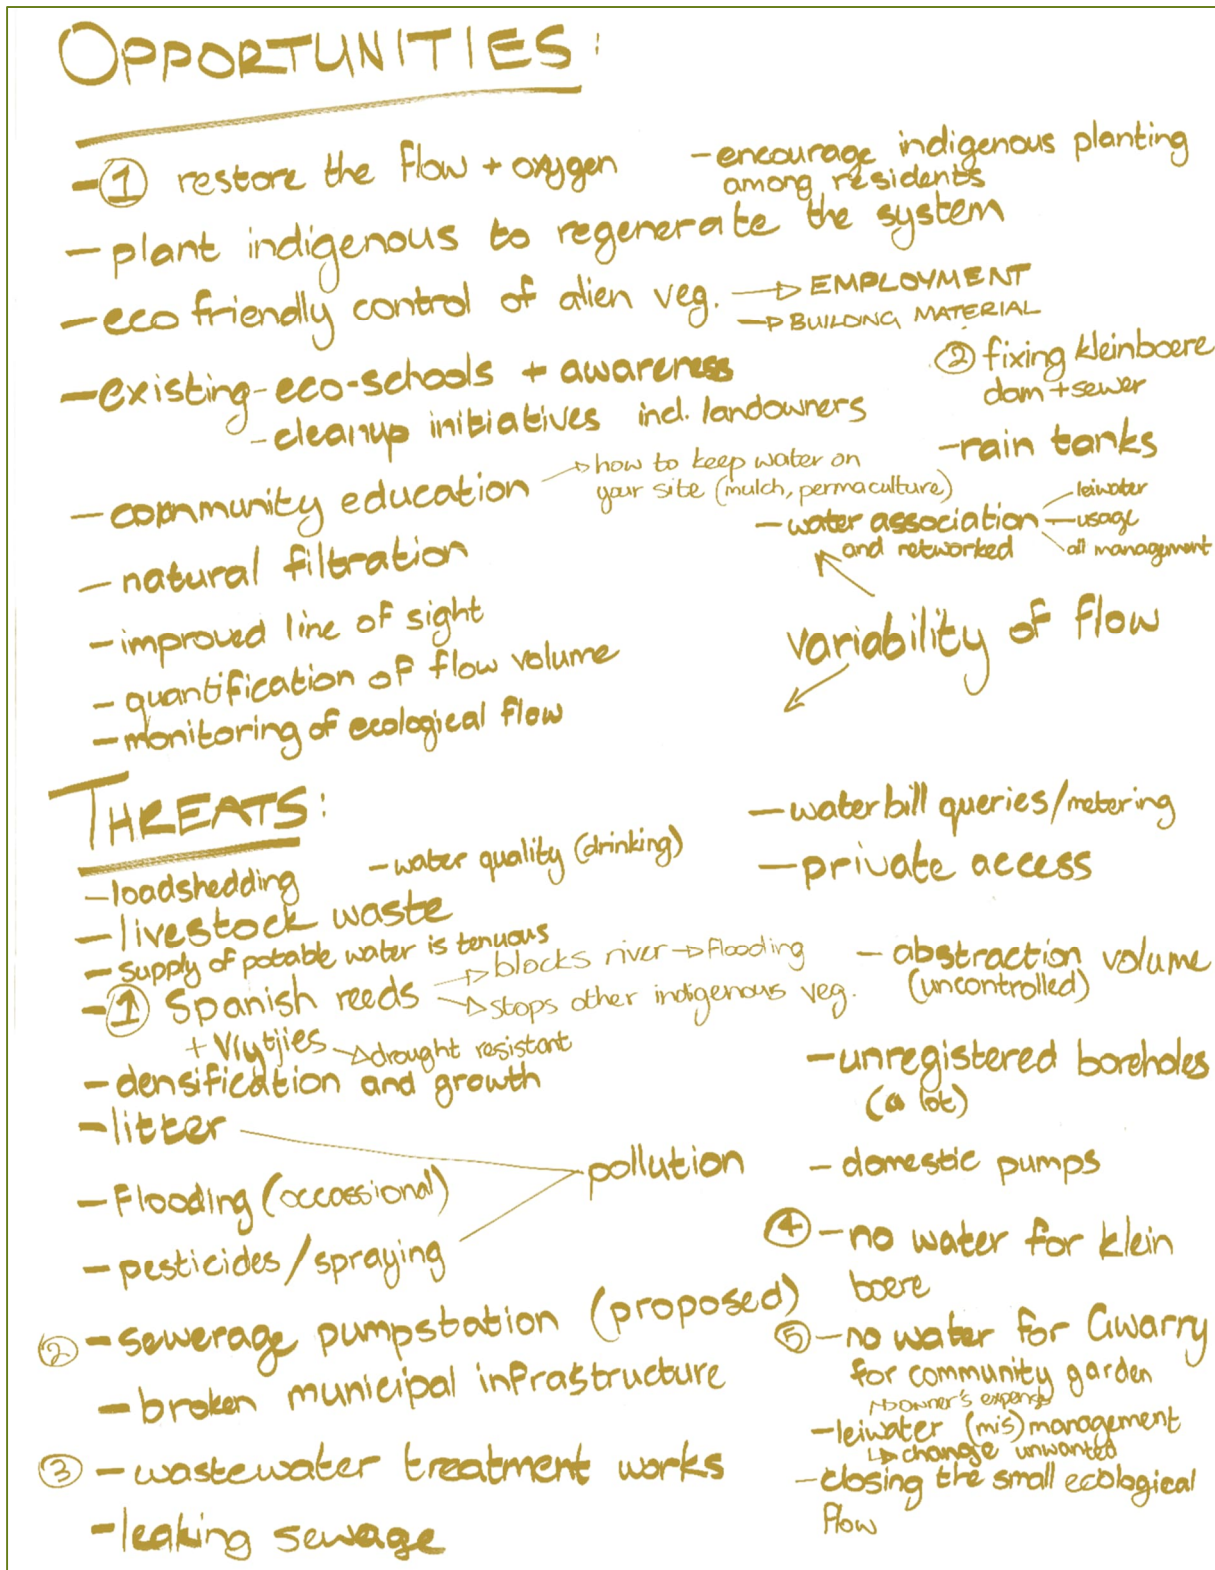 OPPORTUNITIES:
-① restore the flow + oxygen
- encourage indigenous planting
among residents
- plant indigenous to regenerate the system
- eco friendly control of alien veg. → EMPLOYMENT
→ BUILDING MATERIAL
② fixing kleinboere
dam + sewer
- existing - eco-schools + awareness
- cleanup initiatives incl. landowners
- rain tanks
- community education → how to keep water on
your site (mulch, permaculture)
- water association
and networked
leiwater
usage
all management
- natural filtration
- improved line of sight
variability of flow
- quantification of flow volume
- monitoring of ecological flow
THREATS:
- loadshedding
- water quality (drinking)
- livestock waste
- supply of potable water is tenuous
-① Spanish reeds → blocks river → flooding
→ stops other indigenous veg.
+ Vlytjies → drought resistant
- densification and growth
- litter
pollution
- Flooding (occassional)
- pesticides/spraying
② - sewerage pumpstation (proposed)
- broken municipal infrastructure
③ - wastewater treatment works
- leaking sewage
- waterbill queries/metering
- private access
- abstraction volume
(uncontrolled)
- unregistered boreholes
(a lot)
- domestic pumps
④ - no water for klein
boere
⑤ - no water for Gwarry
for community garden
→ owner's expense
- leiwater (mis)management
↳ change unwanted
- closing the small ecological
flow